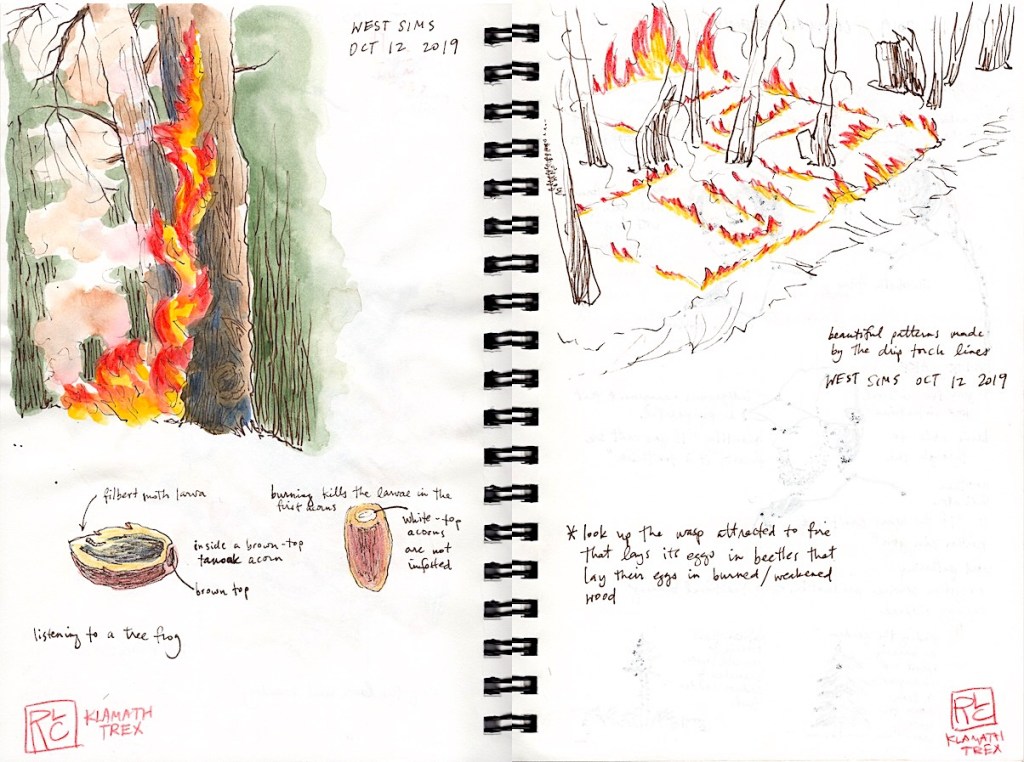 WEST SIMS
OCT 12 2019
filbert moth larva
inside a brown-top
tanoak acorn
brown top
burning kills the larvae in the
first acorns
white-top
acorns
are not
infested
listening to a tree frog
RLC
KLAMATH
TREX
beautiful patterns made
by the drip torch lines
WEST SIMS OCT 12 2019
* look up the wasp attracted to fire
that lays its eggs in beetles that
lay their eggs in burned/weakened
wood
RLC
KLAMATH
TREX